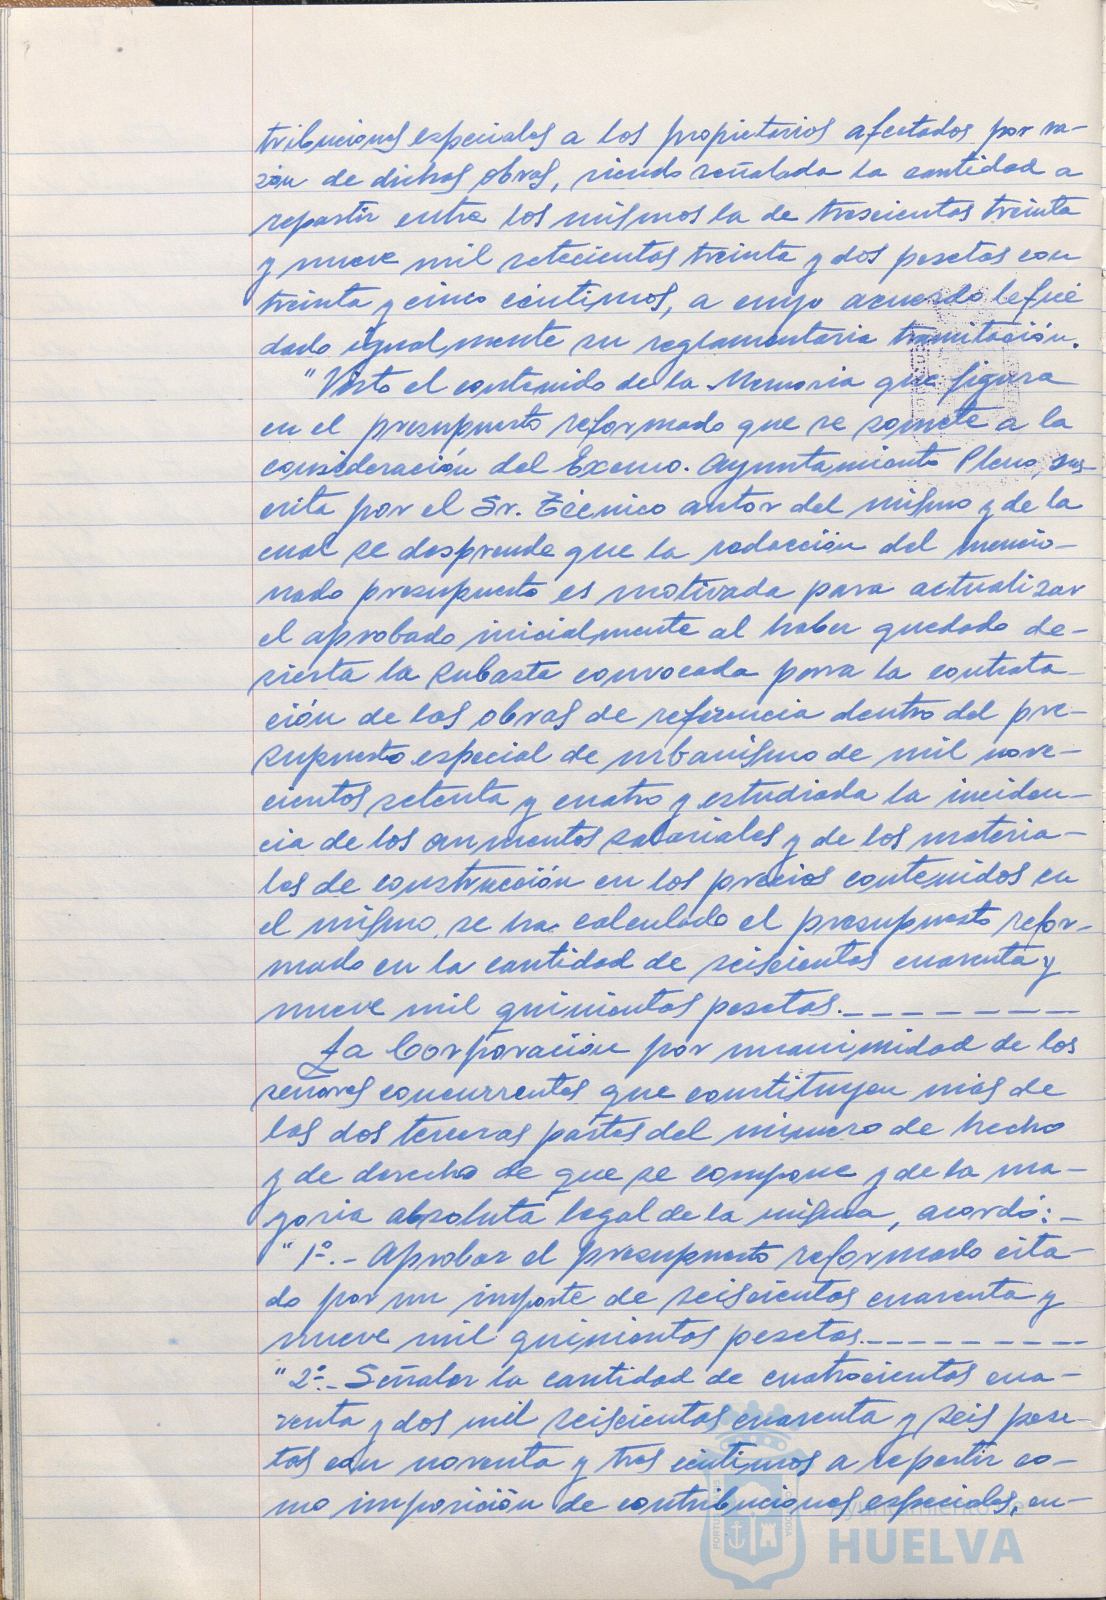 tribuciones especiales a los propietarios afectados por ra-
zón de dichas obras, siendo señalada la cantidad a
repartir entre los mismos la de trescientas treinta
y nueve mil setecientas treinta y dos pesetas con
treinta y cinco céntimos, a cuyo acuerdo le fué
dado igualmente su reglamentaria tramitación.
"Visto el contenido de la Memoria que figura
en el presupuesto reformado que se somete a la
consideración del Excmo. Ayuntamiento Pleno, sus-
crita por el Sr. Técnico autor del mismo y de la
cual se desprende que la redacción del mencio-
nado presupuesto es motivada para actualizar
el aprobado inicialmente al haber quedado de-
sierta la subasta convocada para la contrata-
ción de las obras de referencia dentro del pre-
supuesto especial de urbanismo de mil nove-
cientos setenta y cuatro y estudiada la inciden-
cia de los aumentos salariales y de los materia-
les de construcción en los precios contenidos en
el mismo, se ha calculado el presupuesto refor-
mado en la cantidad de seiscientas cuarenta y
nueve mil quinientas pesetas.
La Corporación por unanimidad de los
señores concurrentes que constituyen más de
las dos terceras partes del número de hecho
y de derecho de que se compone y de la ma-
yoria absoluta legal de la misma, acordó:-
"1º.- Aprobar el presupuesto reformado cita-
do por un importe de seiscientas cuarenta y
nueve mil quinientas pesetas.
"2º.- Señalar la cantidad de cuatrocientas cua-
renta y dos mil seiscientas cuarenta y seis pese-
tas con noventa y tres céntimos a repartir co-
mo imposición de contribuciones especiales, en-
Ayuntamiento de
HUELVA